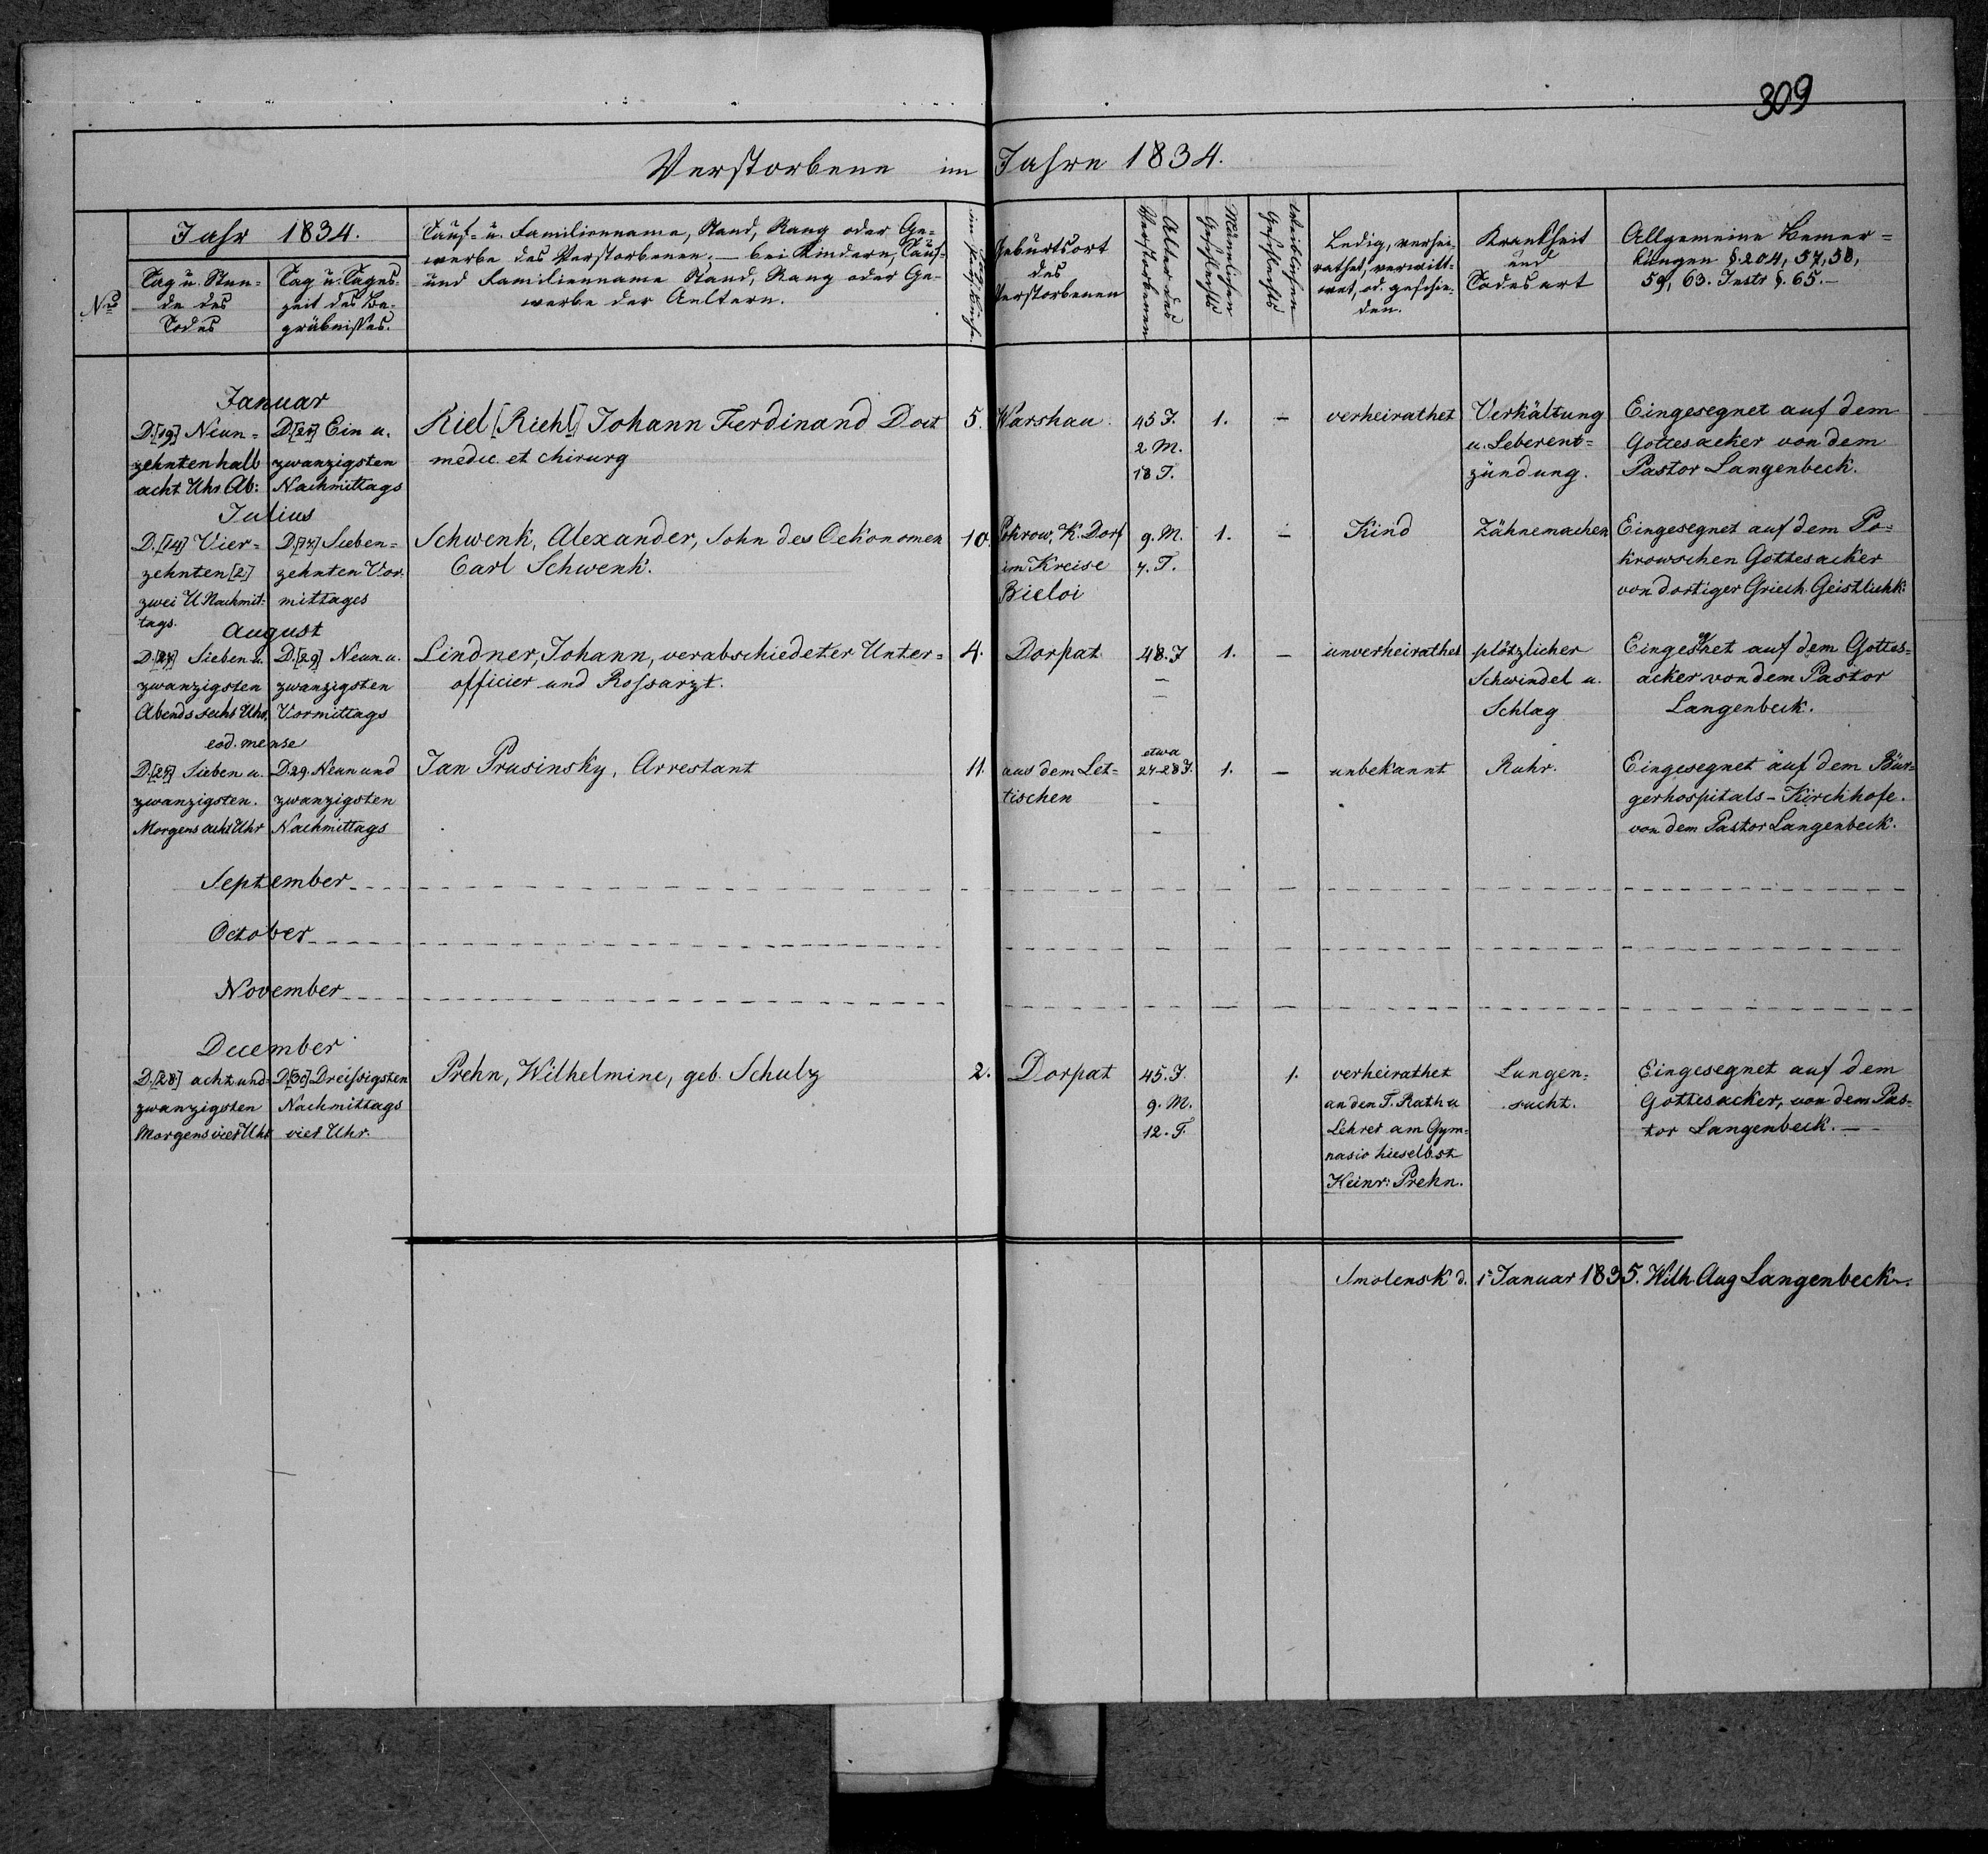 309
Verstorbene im Jahre 1834.
No
Jahr 1834.
Tag u. Stun-
de des
Todes
Tag u. Tages-
zeit des Be-
gräbnisses.
Tauf- u. Familienname, Stand, Rang oder Ge-
werbe des Verstorbenen. — bei Kindern, Tauf-
und Familienname Stand, Rang oder Ge-
werbe der Aeltern.
Geburtsort
des
Verstorbenen
Alter des
Verstorbenen
Männlichen
Geschlechts
Weiblichen
Geschlechts
Ledig, verhei-
rathet, verwitt-
wet, od. geschie-
den.
Krankheit
und
Todesart
Allgemeine Bemer=
kungen §. 204, 57, 58,
59, 63. Instr §. 65.—
Januar
D. [19] Neun=
zehnten halb
acht Uhr Ab:
D [21] Ein u.
zwanzigsten
Nachmittags
Riel [Riehl] Johann Ferdinand Doct
medic. et chirurg
5.
Warshau.
45 J.
2 M.
18 T.
1.
—
verheirathet
Verkältung
u. Leberent=
zündung.
Eingesegnet auf dem
Gottesacker von dem
Pastor Langenbeck.
Julius
D. [14] Vier=
zehnten [2]
zwei U Nachmit:
tags.
D [17] Sieben=
zehnten Vor.
mittages
Schwenk, Alexander, Sohn des Oekonomen
Carl Schwenk.
10.
Pokrow, K. Dorf
im Kreise
Bieloi
9. M.
7. T.
1.
—
Kind
Zähnemachen
Eingesegnet auf dem Po=
krowschen Gottesacker
von dortiger Griech. Geistlichk:
August
D. [27] Sieben u.
zwanzigsten
Abends sechs Uhr,
D. [29] Neun u.
zwanzigsten
Vormittags
Lindner, Johann, verabschiedeter Unter=
officier und Rossarzt.
4.
Dorpat
48. J
—
—
1.
—
unverheirathet
plötzlicher
Schwindel u.
Schlag
auf dem Gottes=
acker von dem Pastor
Langenbeck.
eod. mense
D. [27] Sieben u.
zwanzigsten.
Morgens acht Uhr
D 29. Neun und
zwanzigsten
Nachmittags
Jan Prusinsky, Arrestant
11.
aus dem Let=
tischen
etwa
27-28 J.
-
-
1.
—
unbekannt
Ruhr.
Eingesegnet auf dem Bür=
gerhospitals-Kirchhofe.
von dem Pastor Langenbeck.
September
October
November
December
D. [28] acht und=
zwanzigsten
Morgens vier Uhr
D. [30] Dreissigsten
Nachmittags
vier Uhr.
Prehn, Wilhelmine, geb. Schulz
2.
Dorpat
45. J.
9. M.
12. T.
1.
verheirathet
an den T. Rath u
Lehrer am Gym=
nasio hieselbst
Heinr: Prehn.
Lungen=
sucht.
Eingesegnet auf dem
Gottesacker, von dem Pas=
tor Langenbeck. —
Smolensk d. 1 Januar 1835. Wilh. Aug Langenbeck.